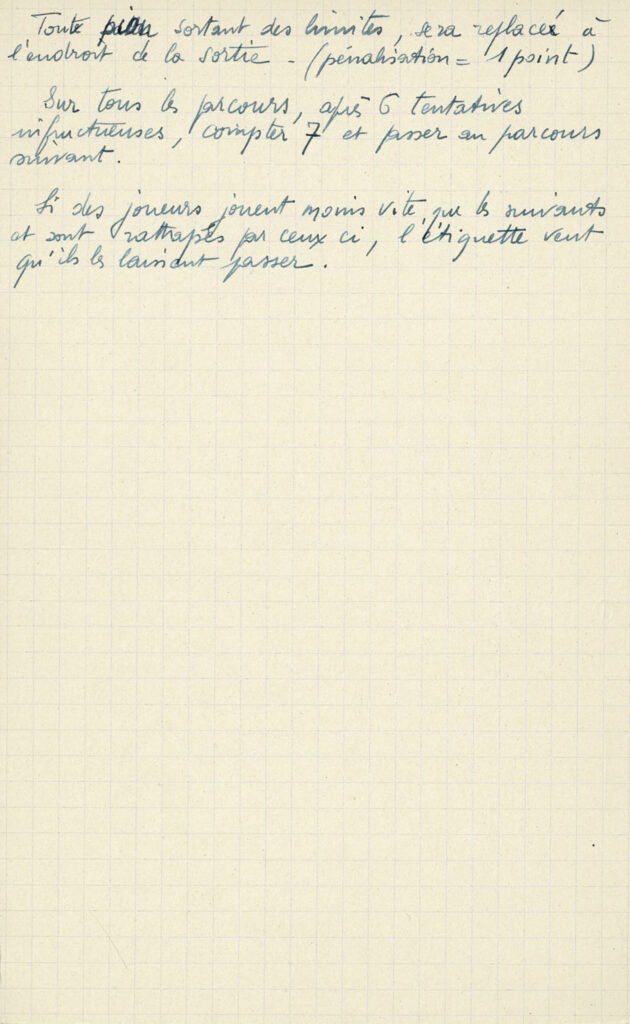 Toute sortant des limites, sera replacée à
l'endroit de la sortie - (pénalisation = 1 point)
Sur tous les parcours, après 6 tentatives
infructueuses, compter 7 et passer au parcours
suivant.
Si des joueurs jouent moins vite que les suivants
et sont rattrapés par ceux ci, l'étiquette veut
qu'ils les laissent passer.